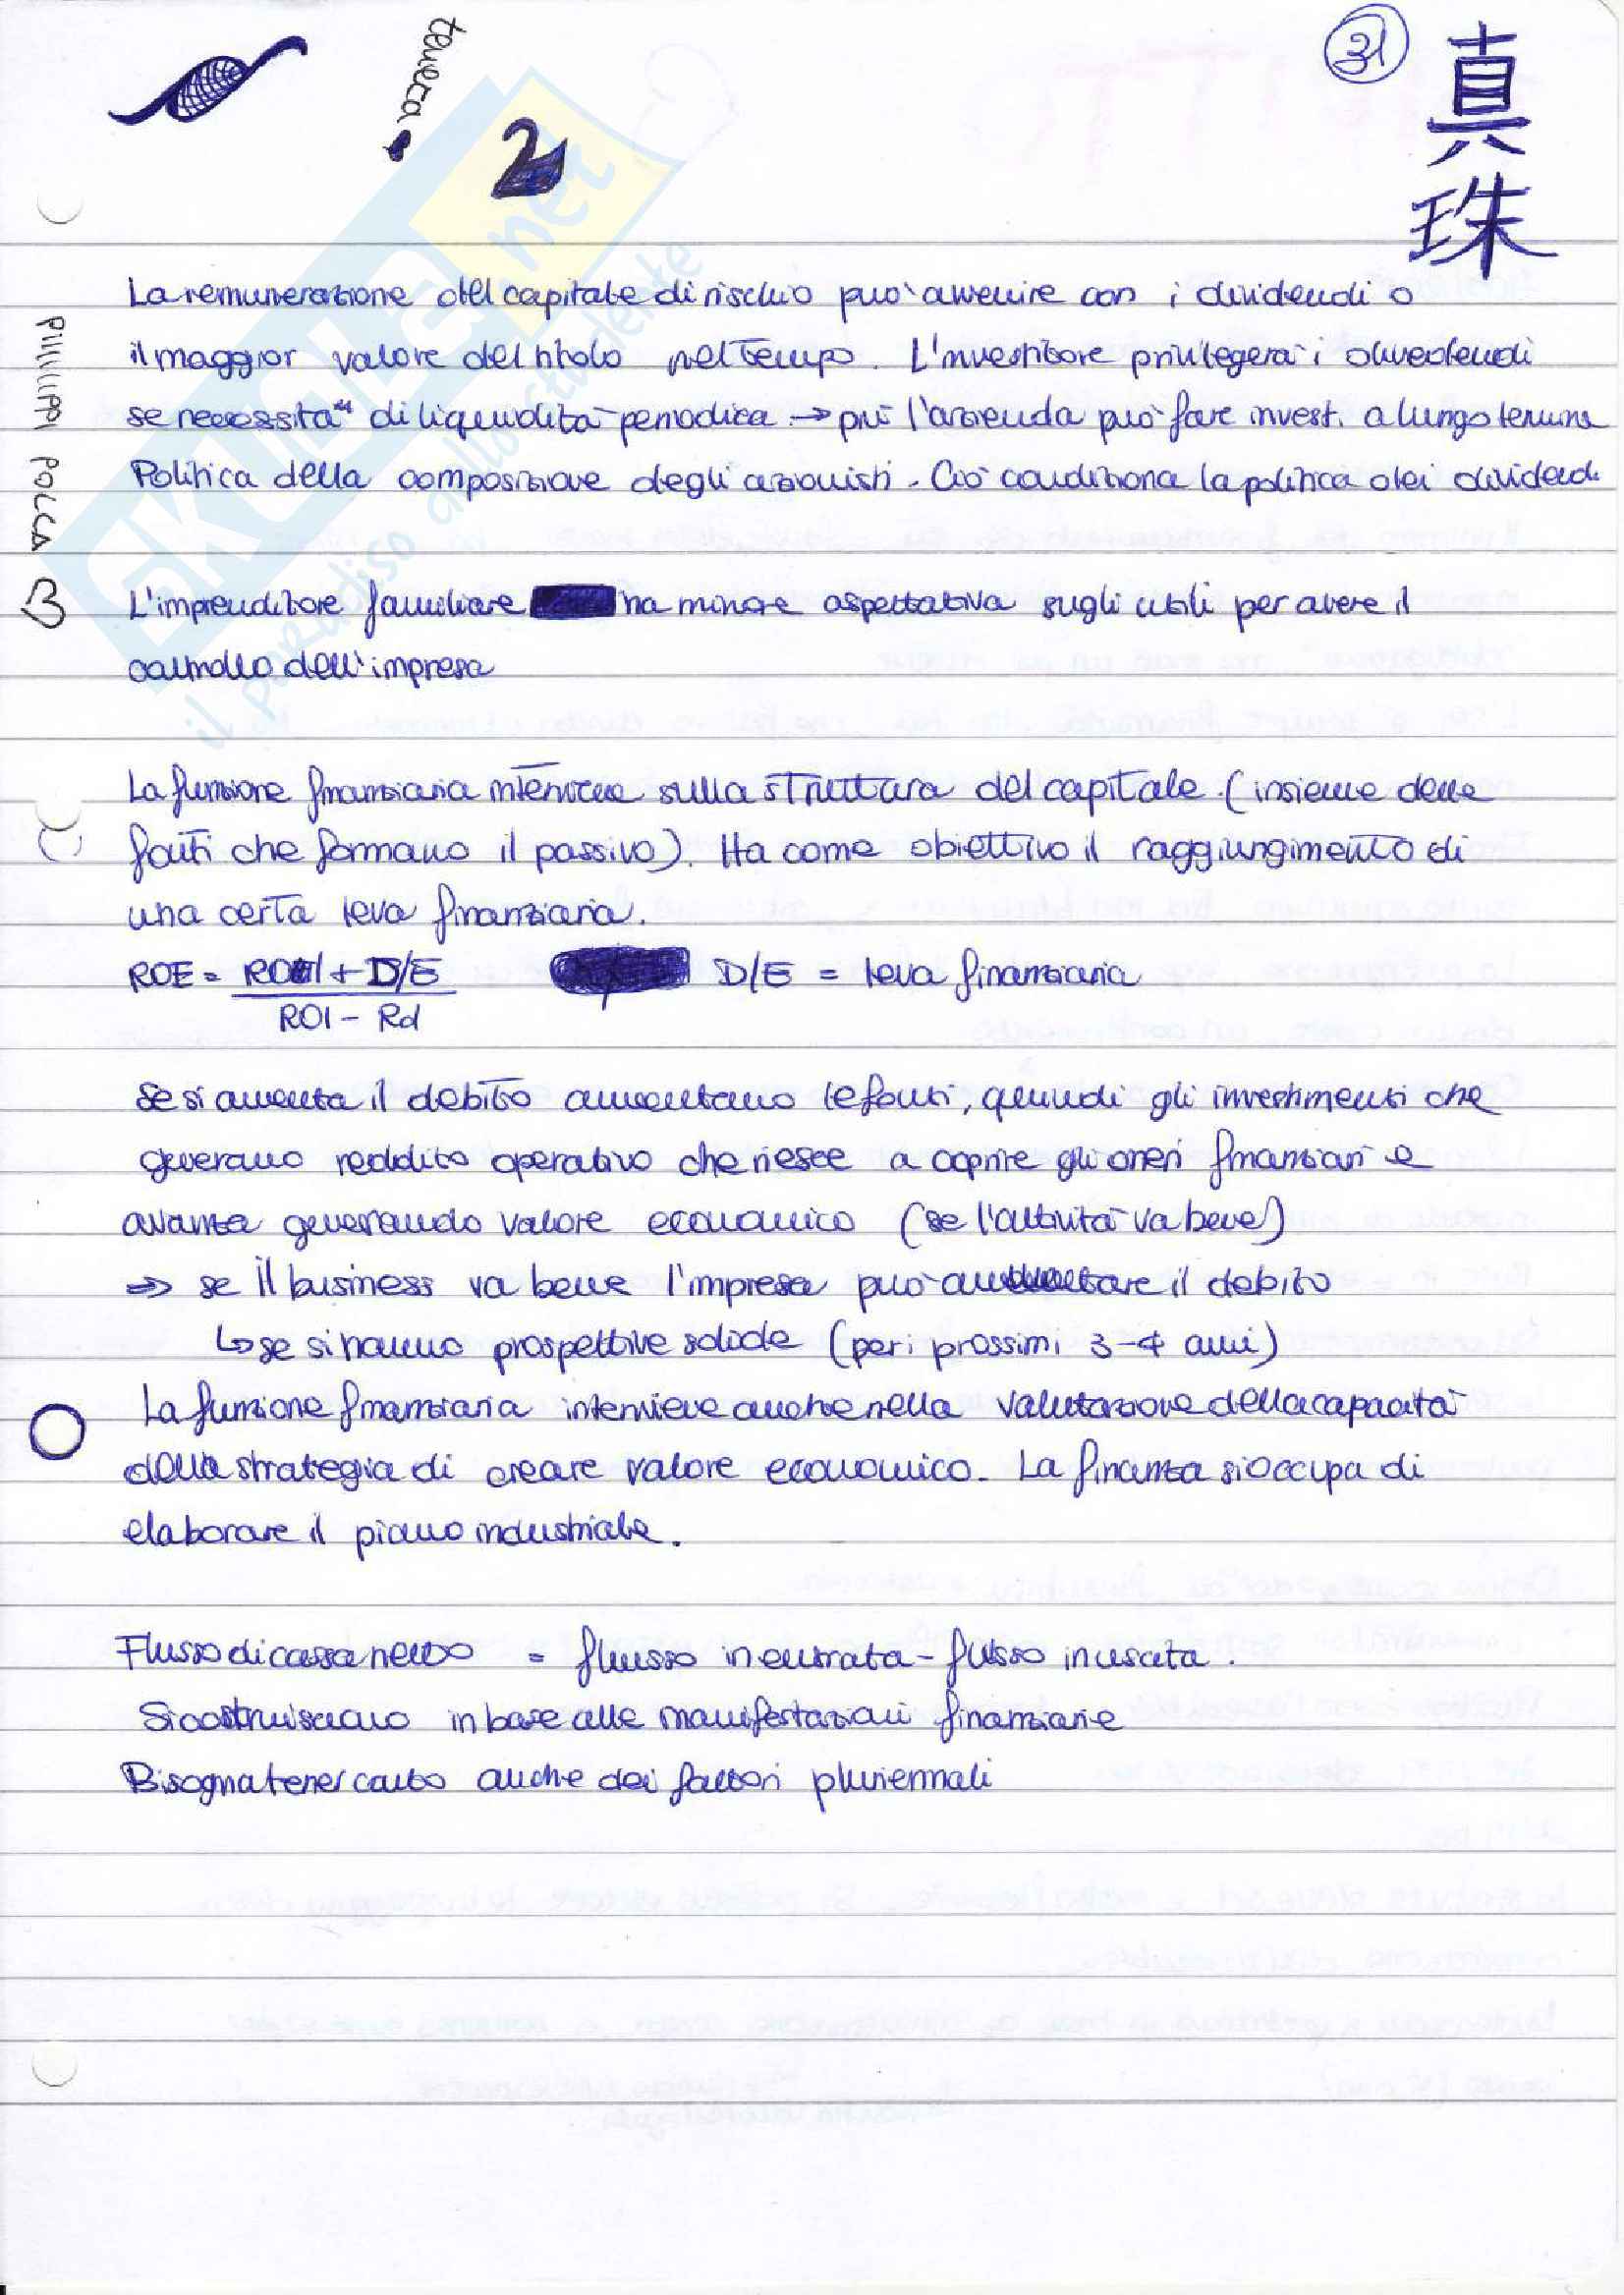 31
真珠
tenerca
2
La remunerazione del capitale di rischio può avvenire con i dividendi o
il maggior valore del titolo nel tempo. L'investitore privilegerà i dividendi
se necessita di liquidità periodica → più l'azienda può fare invest. a lungo termine
Politica della composizione degli azionisti. Ciò condiziona la politica dei dividendi
L'imprenditore familiare ha minore aspettativa sugli utili per avere il
controllo dell'impresa
La funzione finanziaria interviene sulla struttura del capitale (insieme delle
fonti che formano il passivo). Ha come obiettivo il raggiungimento di
una certa leva finanziaria.
ROE = ROI + D/E D/E = leva finanziaria
ROI - Rd
Se si aumenta il debito aumentano le fonti, quindi gli investimenti che
generano reddito operativo che riesce a coprire gli oneri finanziari e
avanza generando valore economico (se l'attività va bene)
⇒ se il business va bene l'impresa può aumentare il debito
↳ se si hanno prospettive solide (per i prossimi 3-4 anni)
La funzione finanziaria interviene anche nella valutazione della capacità
della strategia di creare valore economico. La finanza si occupa di
elaborare il piano industriale.
Flusso di cassa netto = flusso in entrata - flusso in uscita.
Si costruiscono in base alle manifestazioni finanziarie
Bisogna tener conto anche dei fattori pluriennali
SKUOLA.net
il paradiso dello studente